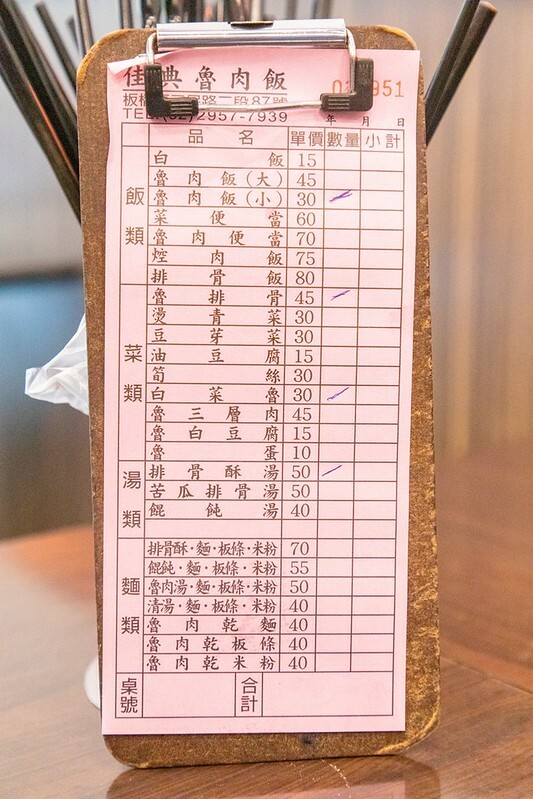 佳典魯肉飯
951
段87號
2957-7939
年 月 日
品名 單價 數量 小計
飯類
白飯 15
魯肉飯(大) 45
魯肉飯(小) 30
菜便當 60
魯肉便當 70
焢肉飯 75
排骨飯 80
菜類
魯排骨 45
燙青菜 30
豆芽菜 30
油豆腐 15
筍絲 30
白菜魯 30
魯三層肉 45
魯白豆腐 15
魯蛋 10
湯類
排骨酥湯 50
苦瓜排骨湯 50
餛飩湯 40
麵類
排骨酥·麵·板條·米粉 70
餛飩·麵·板條·米粉 55
魯肉湯·麵·板條·米粉 50
清湯·麵·板條·米粉 40
魯肉乾麵 40
魯肉乾板條 40
魯肉乾米粉 40
桌號 合計